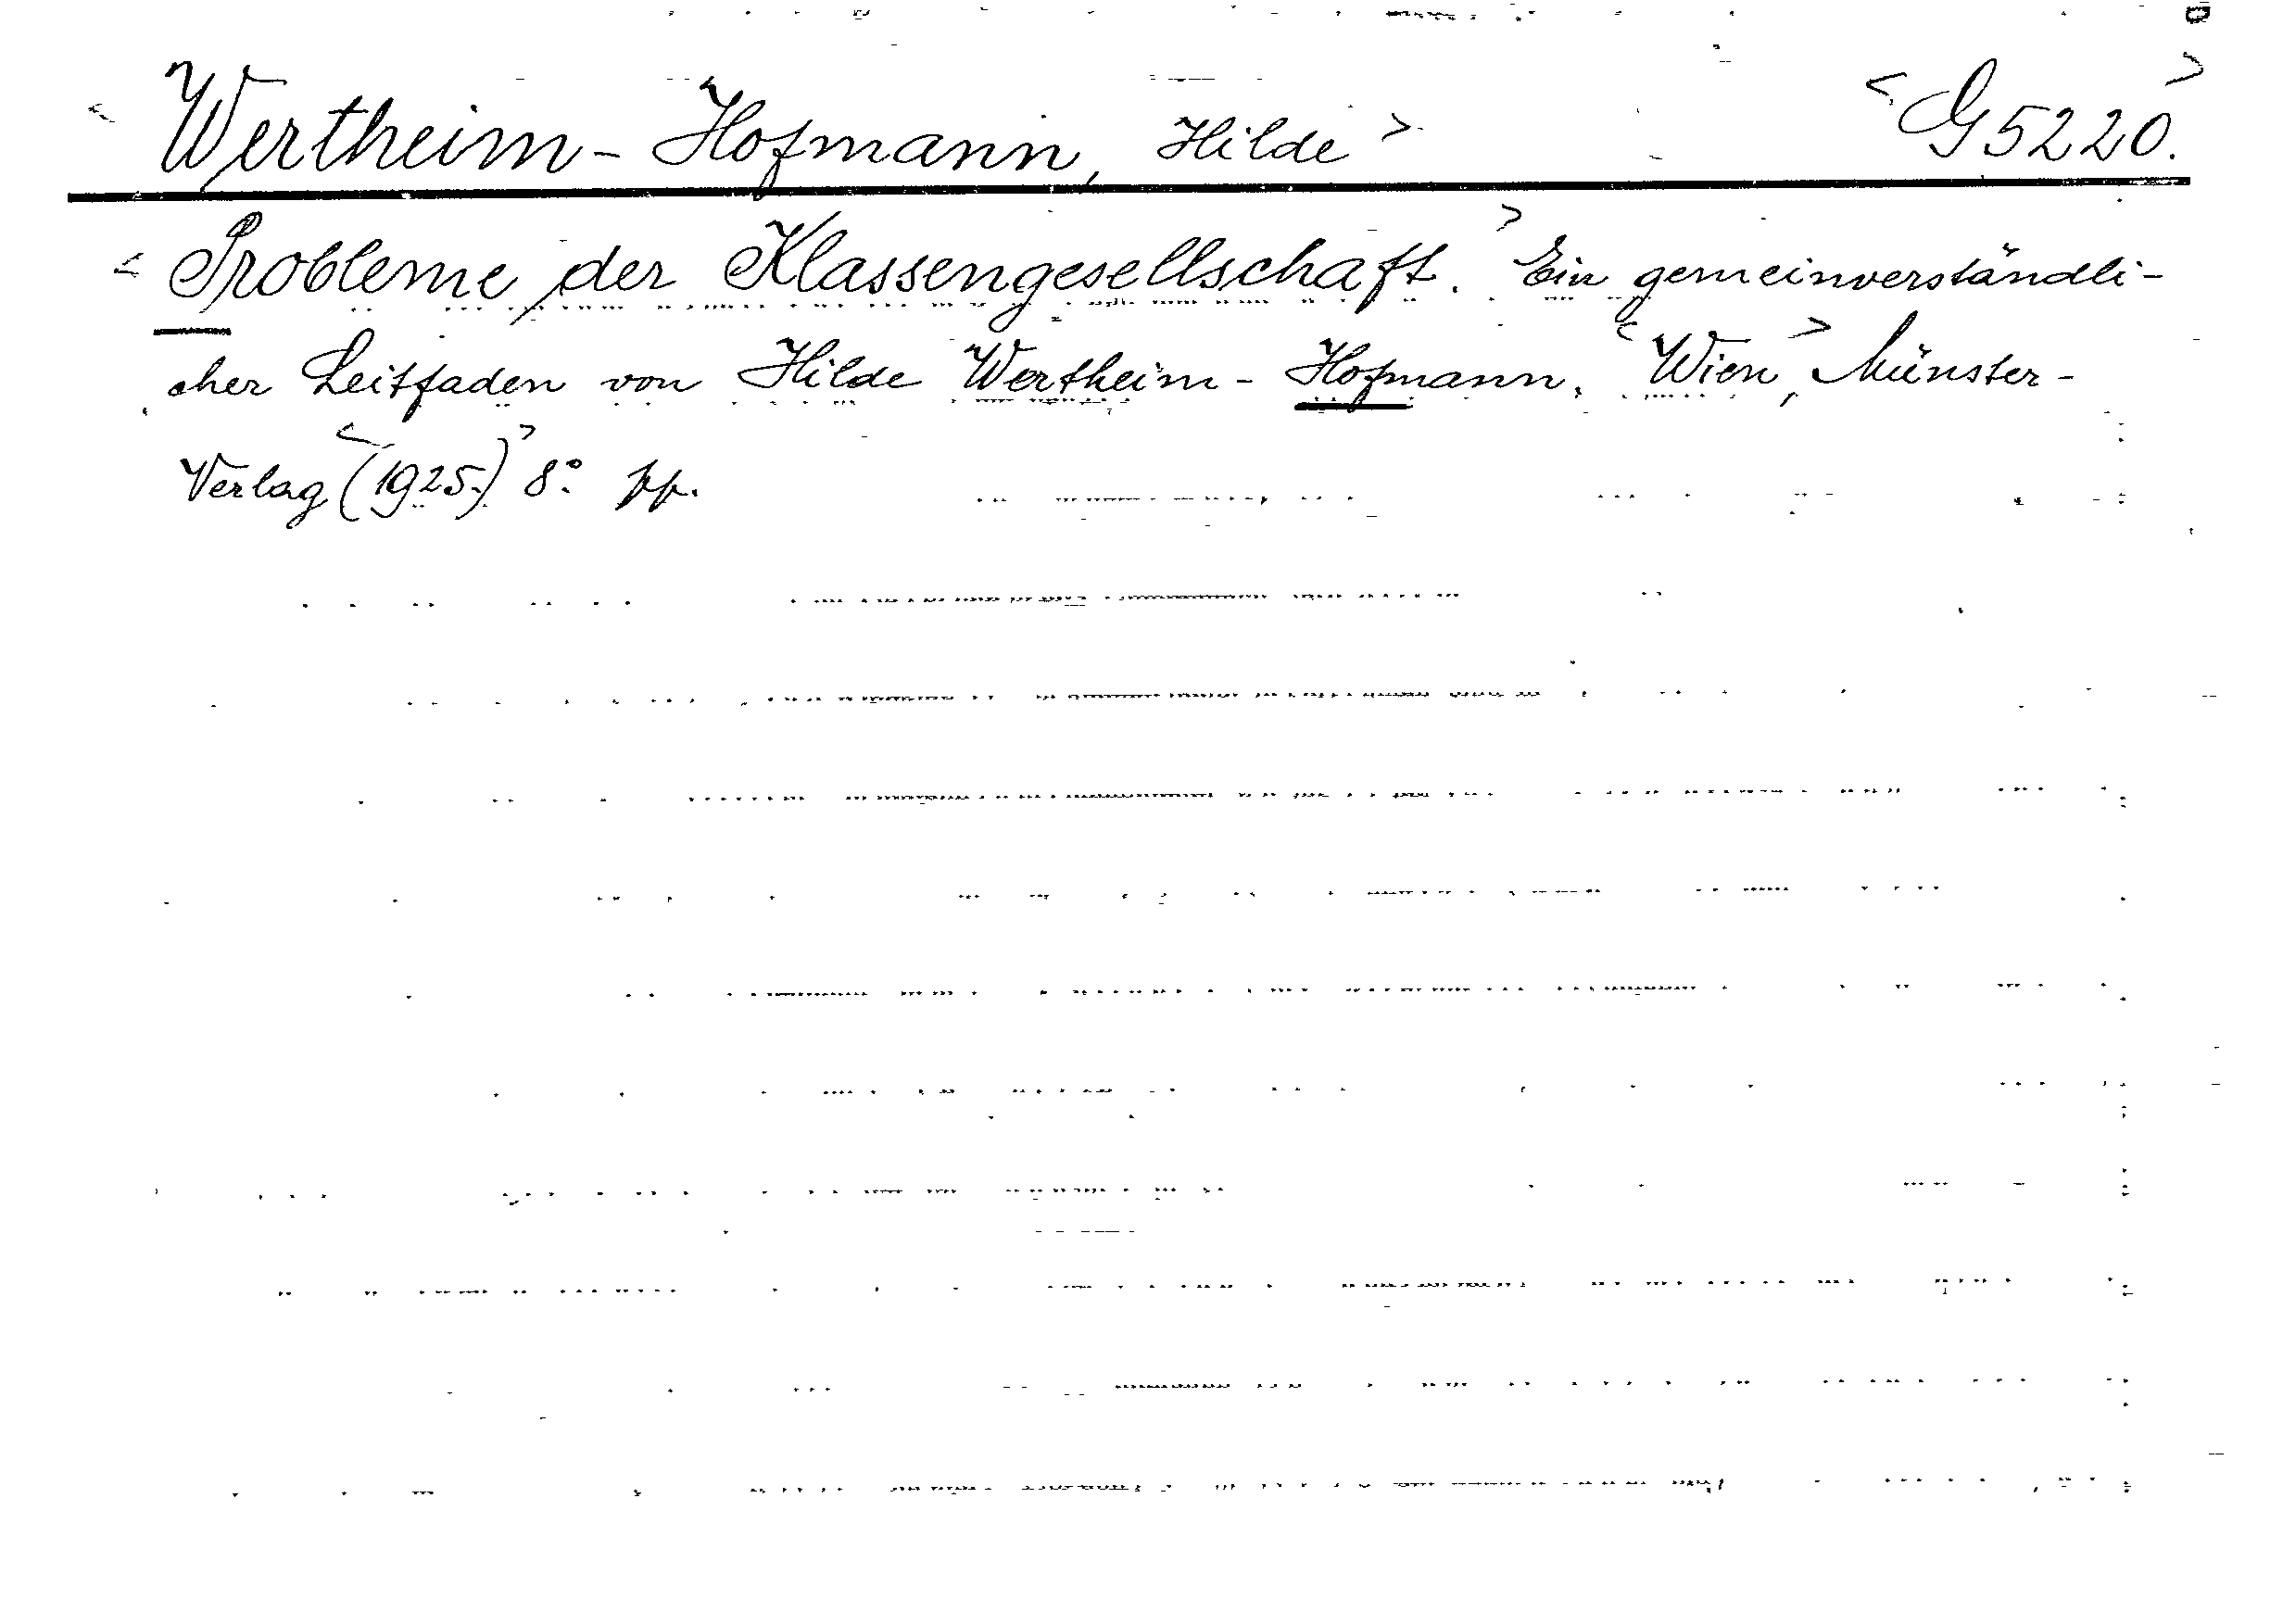 < Wertheim-Hofmann, Hilde > < G 5220. >
< Probleme der Klassengesellschaft. > Ein gemeinverständli-
cher Leitfaden von Hilde Wertheim-Hofmann. < Wien >, Münster-
Verlag < (1925.) > 8° pp.